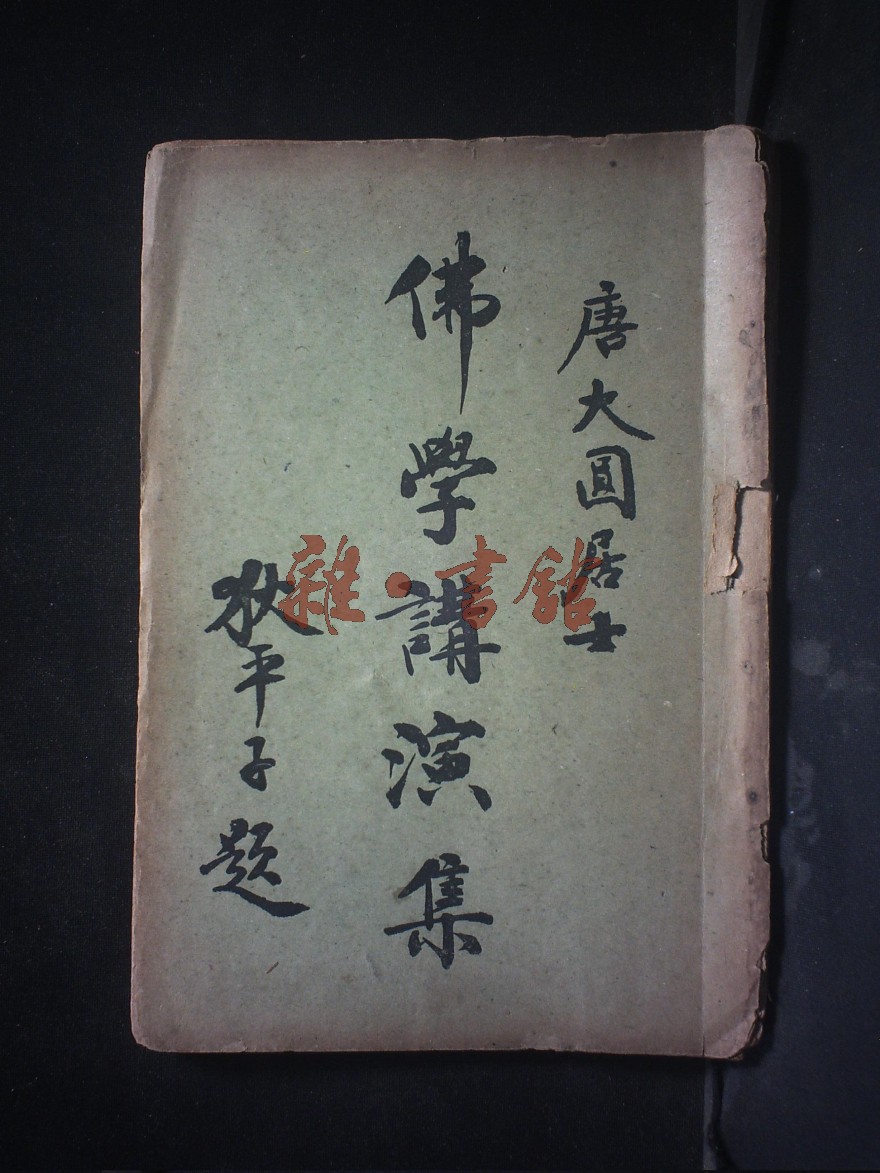 唐大圓居士
佛學講演集
狄平子題
雜·書館